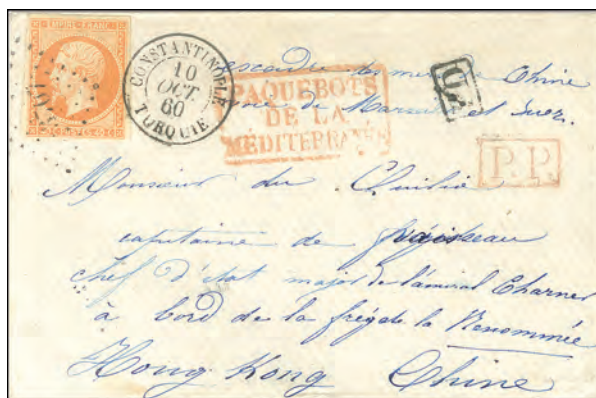 EMPIRE FRANC
CONSTANTINOPLE
10
OCT.
60
TURQUIE
PAQUEBOTS
DE LA
MÉDITERRANÉE
escadre des mers de Chine
voie de Marseille et Suez.
PD
P.P.
Monsieur du
capitaine de
chef d'état major de l'amiral Charner
à bord de la frég de la Renommée
Hong Kong Chine